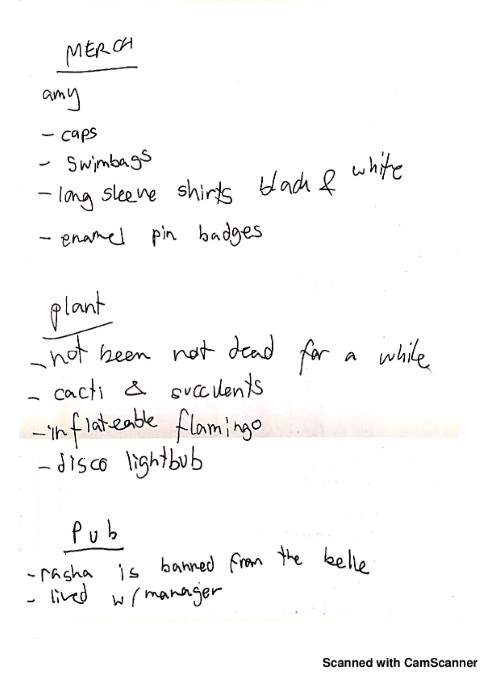 MERCH
amy
- caps
- swimbags
- long sleeve shirts black & white
- enamel pin badges
plant
- not been not dead for a while
- cacti & succulents
- inflateable flamingo
- disco lightbub
Pub
- rasha is banned from the belle
- lived w/manager
Scanned with CamScanner